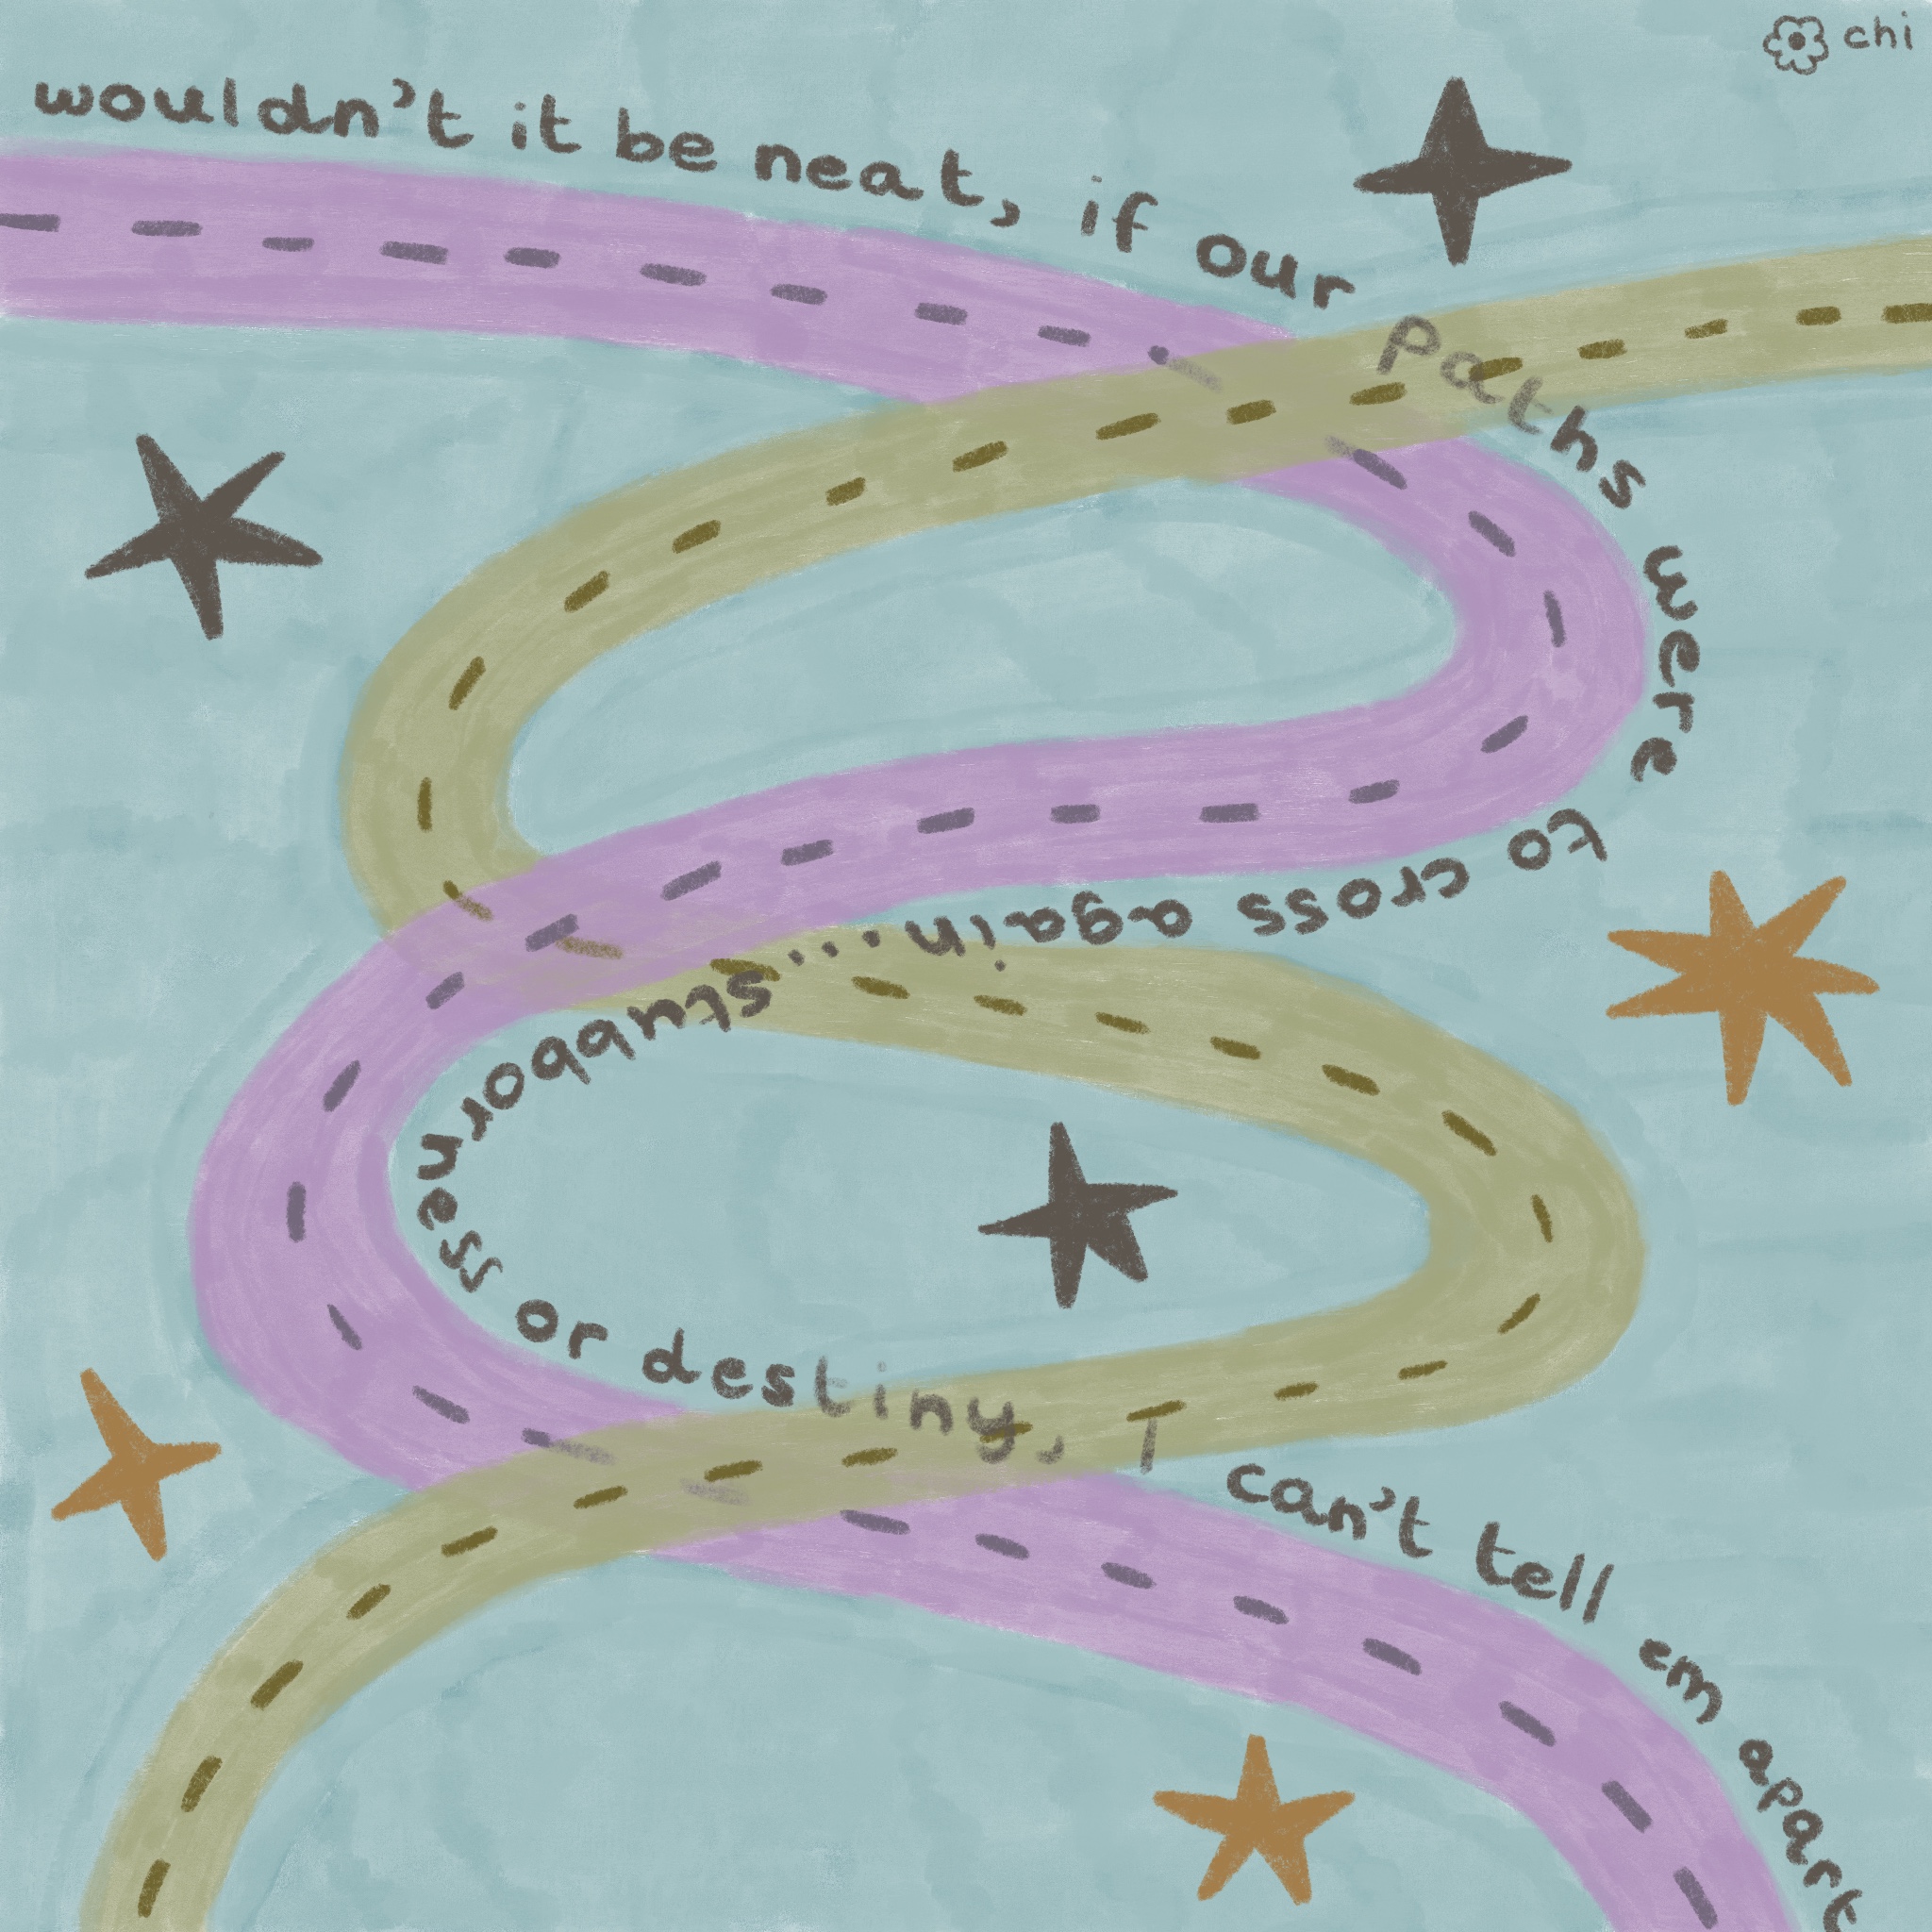 chi
wouldn't it be neat, if our paths were to cross again... stubborness or destiny, I can't tell em apart